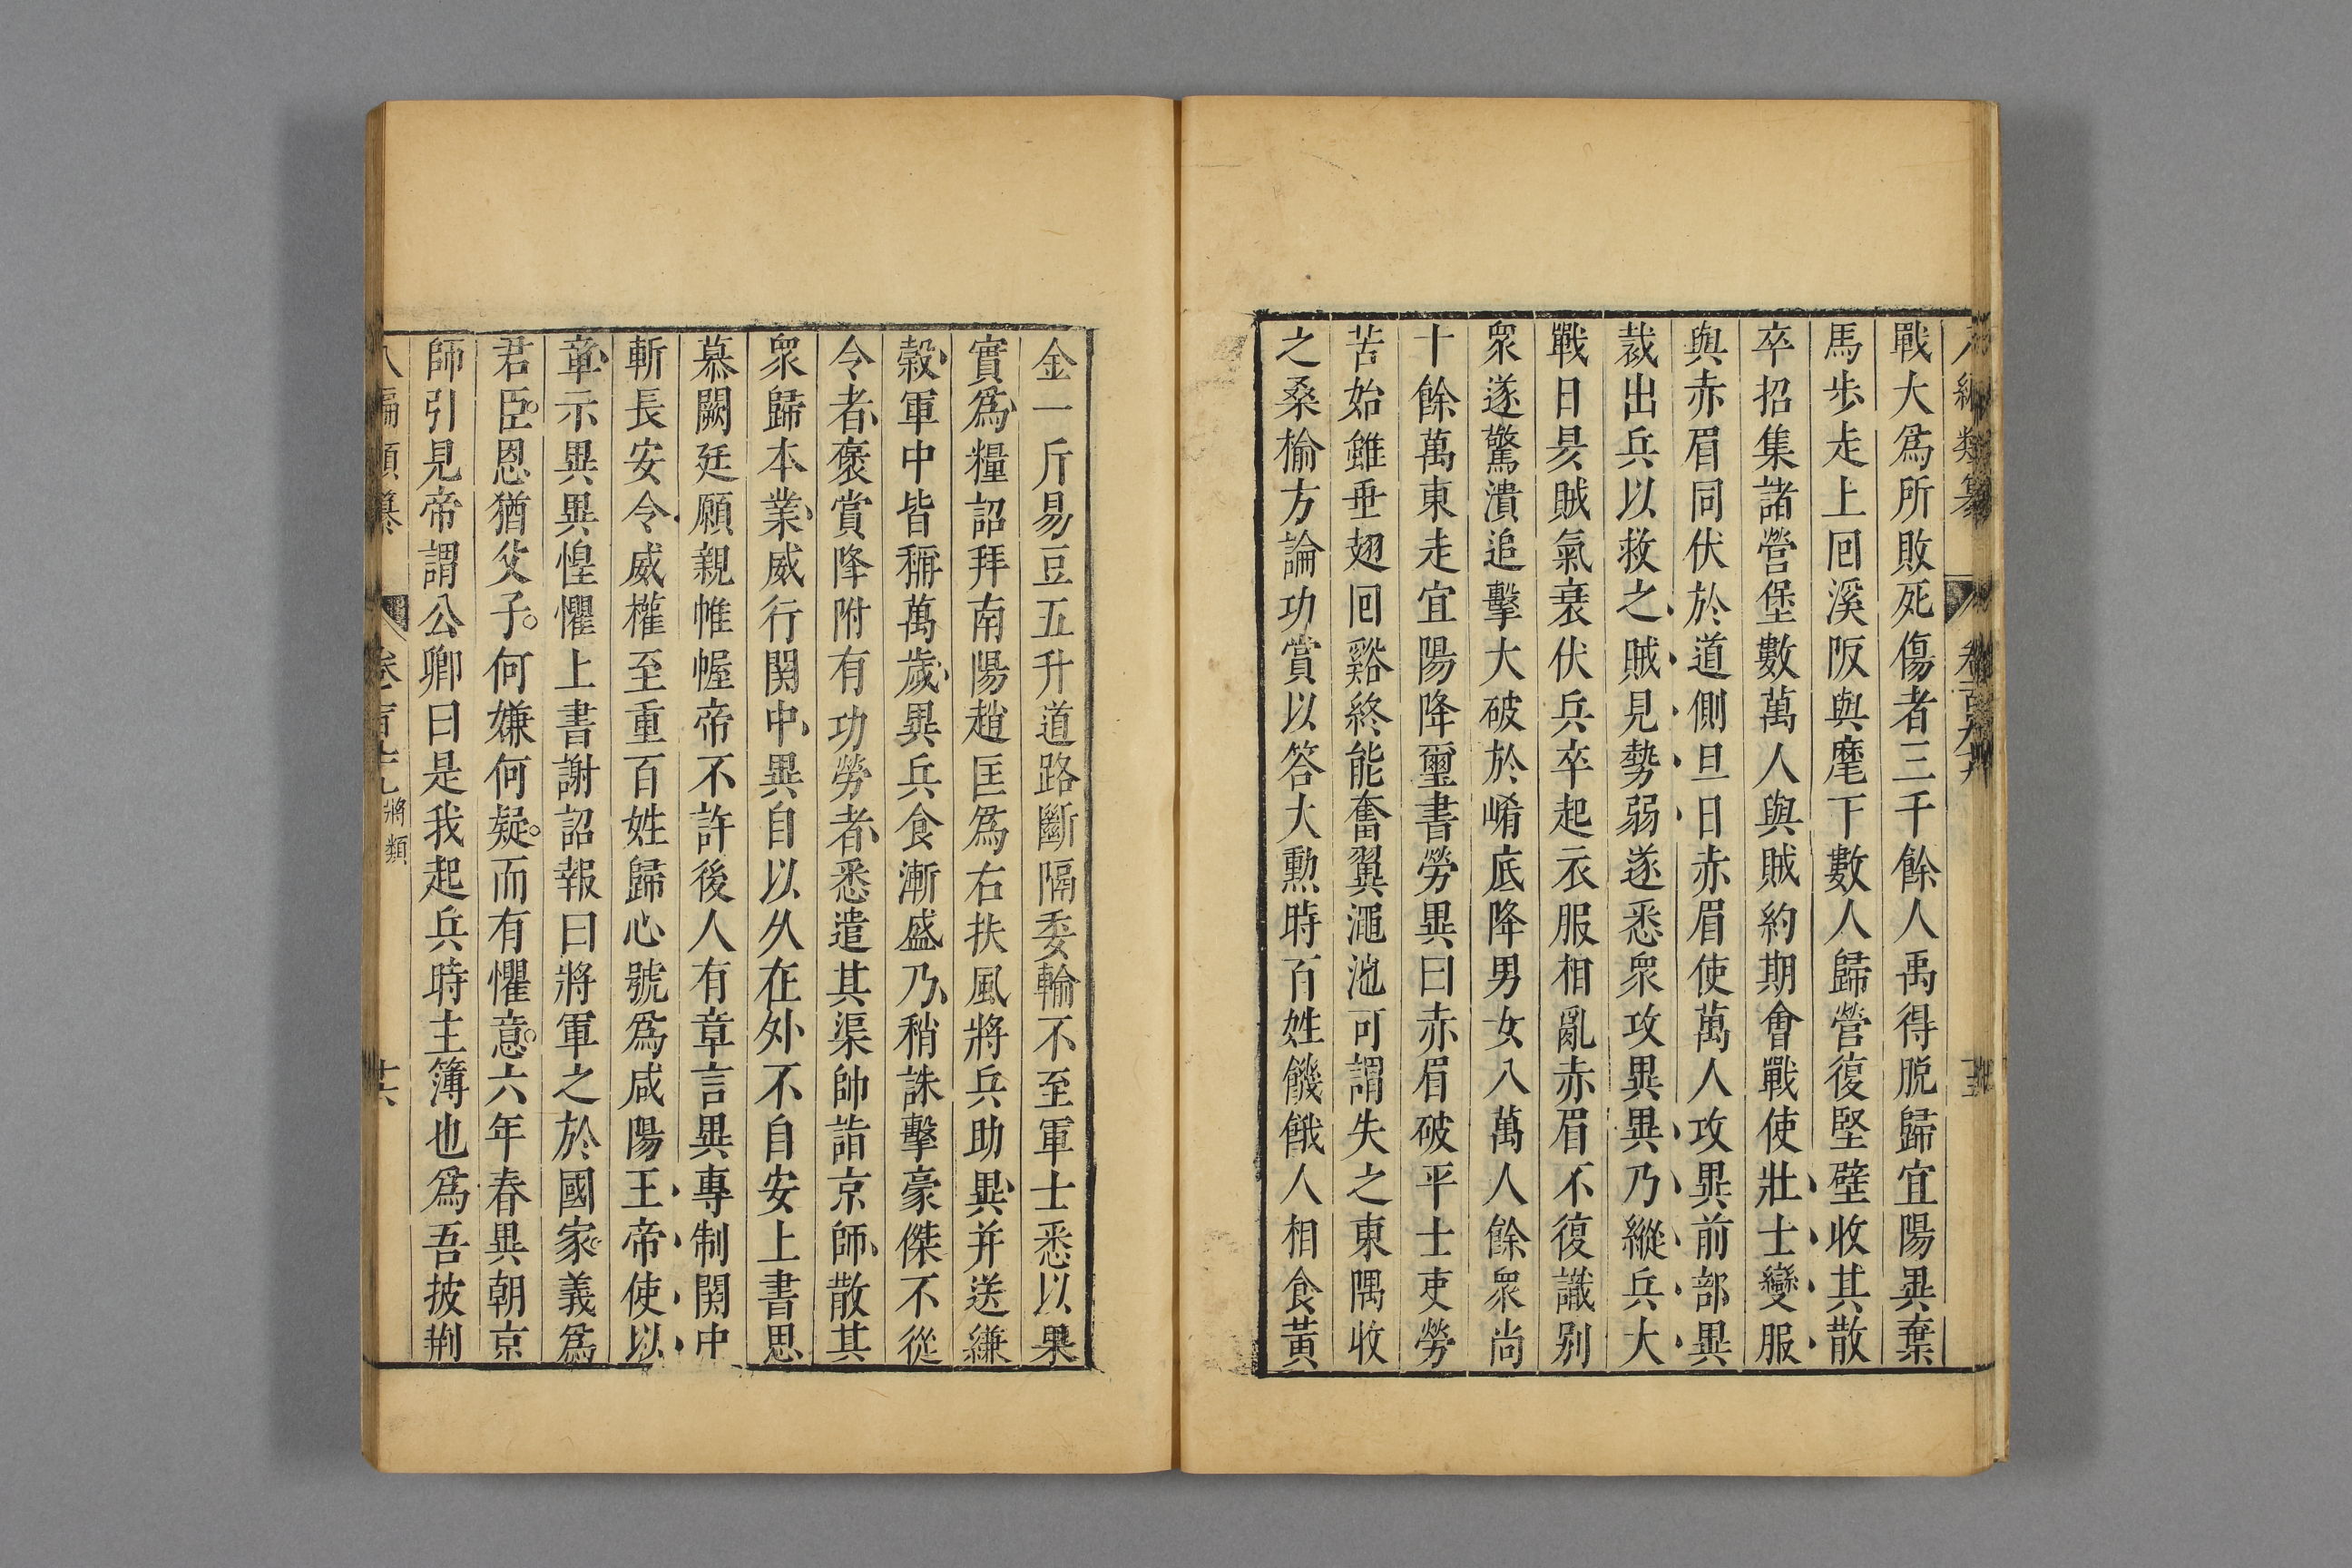 戰大爲所敗死傷者三千餘人禹得脱歸宜陽異棄
馬步走上囘溪阪與麾下數人歸營復堅壁收其散
卒招集諸營堡數萬人與賊約期會戰使壯士變服
與赤眉同伏於道側旦日赤眉使萬人攻異前部異
裁出兵以救之賊見勢弱遂悉衆攻異異乃縱兵大
戰日昃賊氣衰伏兵卒起衣服相亂赤眉不復識别
衆遂驚潰追擊大破於崤底降男女八萬人餘衆尚
十餘萬東走宜陽降璽書勞異曰赤眉破平士吏勞
苦始雖垂翅囘谿終能奮翼澠池可謂失之東隅收
之桑榆方論功賞以答大勳時百姓饑餓人相食黃
金一斤易豆五升道路斷隔委輸不至軍士悉以果
實爲糧詔拜南陽趙匡爲右扶風將兵助異并送縑
穀軍中皆稱萬歲異兵食漸盛乃稍誅擊豪傑不從
令者褒賞降附有功勞者悉遣其渠帥詣京師散其
衆歸本業威行関中異自以久在外不自安上書思
慕闕廷願親帷幄帝不許後人有章言異專制関中
斬長安令威權至重百姓歸心號爲咸陽王帝使以
章示異異惶懼上書謝詔報曰將軍之於國家義爲
君臣恩猶父子何嫌何疑而有懼意六年春異朝京
師引見帝謂公卿曰是我起兵時主簿也爲吾披荆
將類